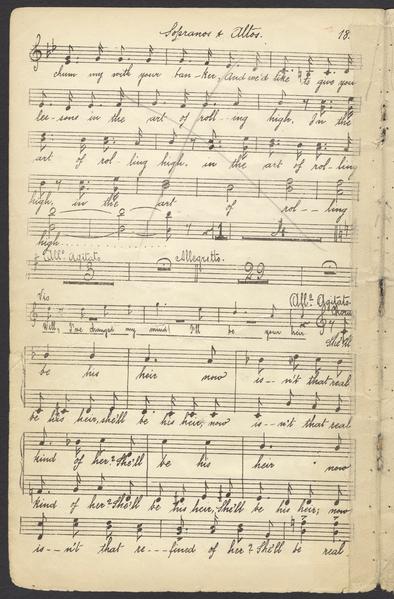 Sopranos & Altos. 13.
chum my with your ban-ker, And we'd like to give you
les-sons in the art of roll-ing high. In the
art of rol-ling high. in the art of rol-ling
high, in the art of rol--ling
high........
1 4
All° Agitato. Allegretto.
3 29
All° Agitato.
Vio Chorus
Will, I've changed my mind! I'll be your heir
She'll
be his heir now is--n't that real
be his heir, she'll be his heir, now is--n't that real
kind of her? She'll be his heir now
kind of her? She'll be his heir, she'll be his heir; now
is--n't that re---fined of her? She'll be real